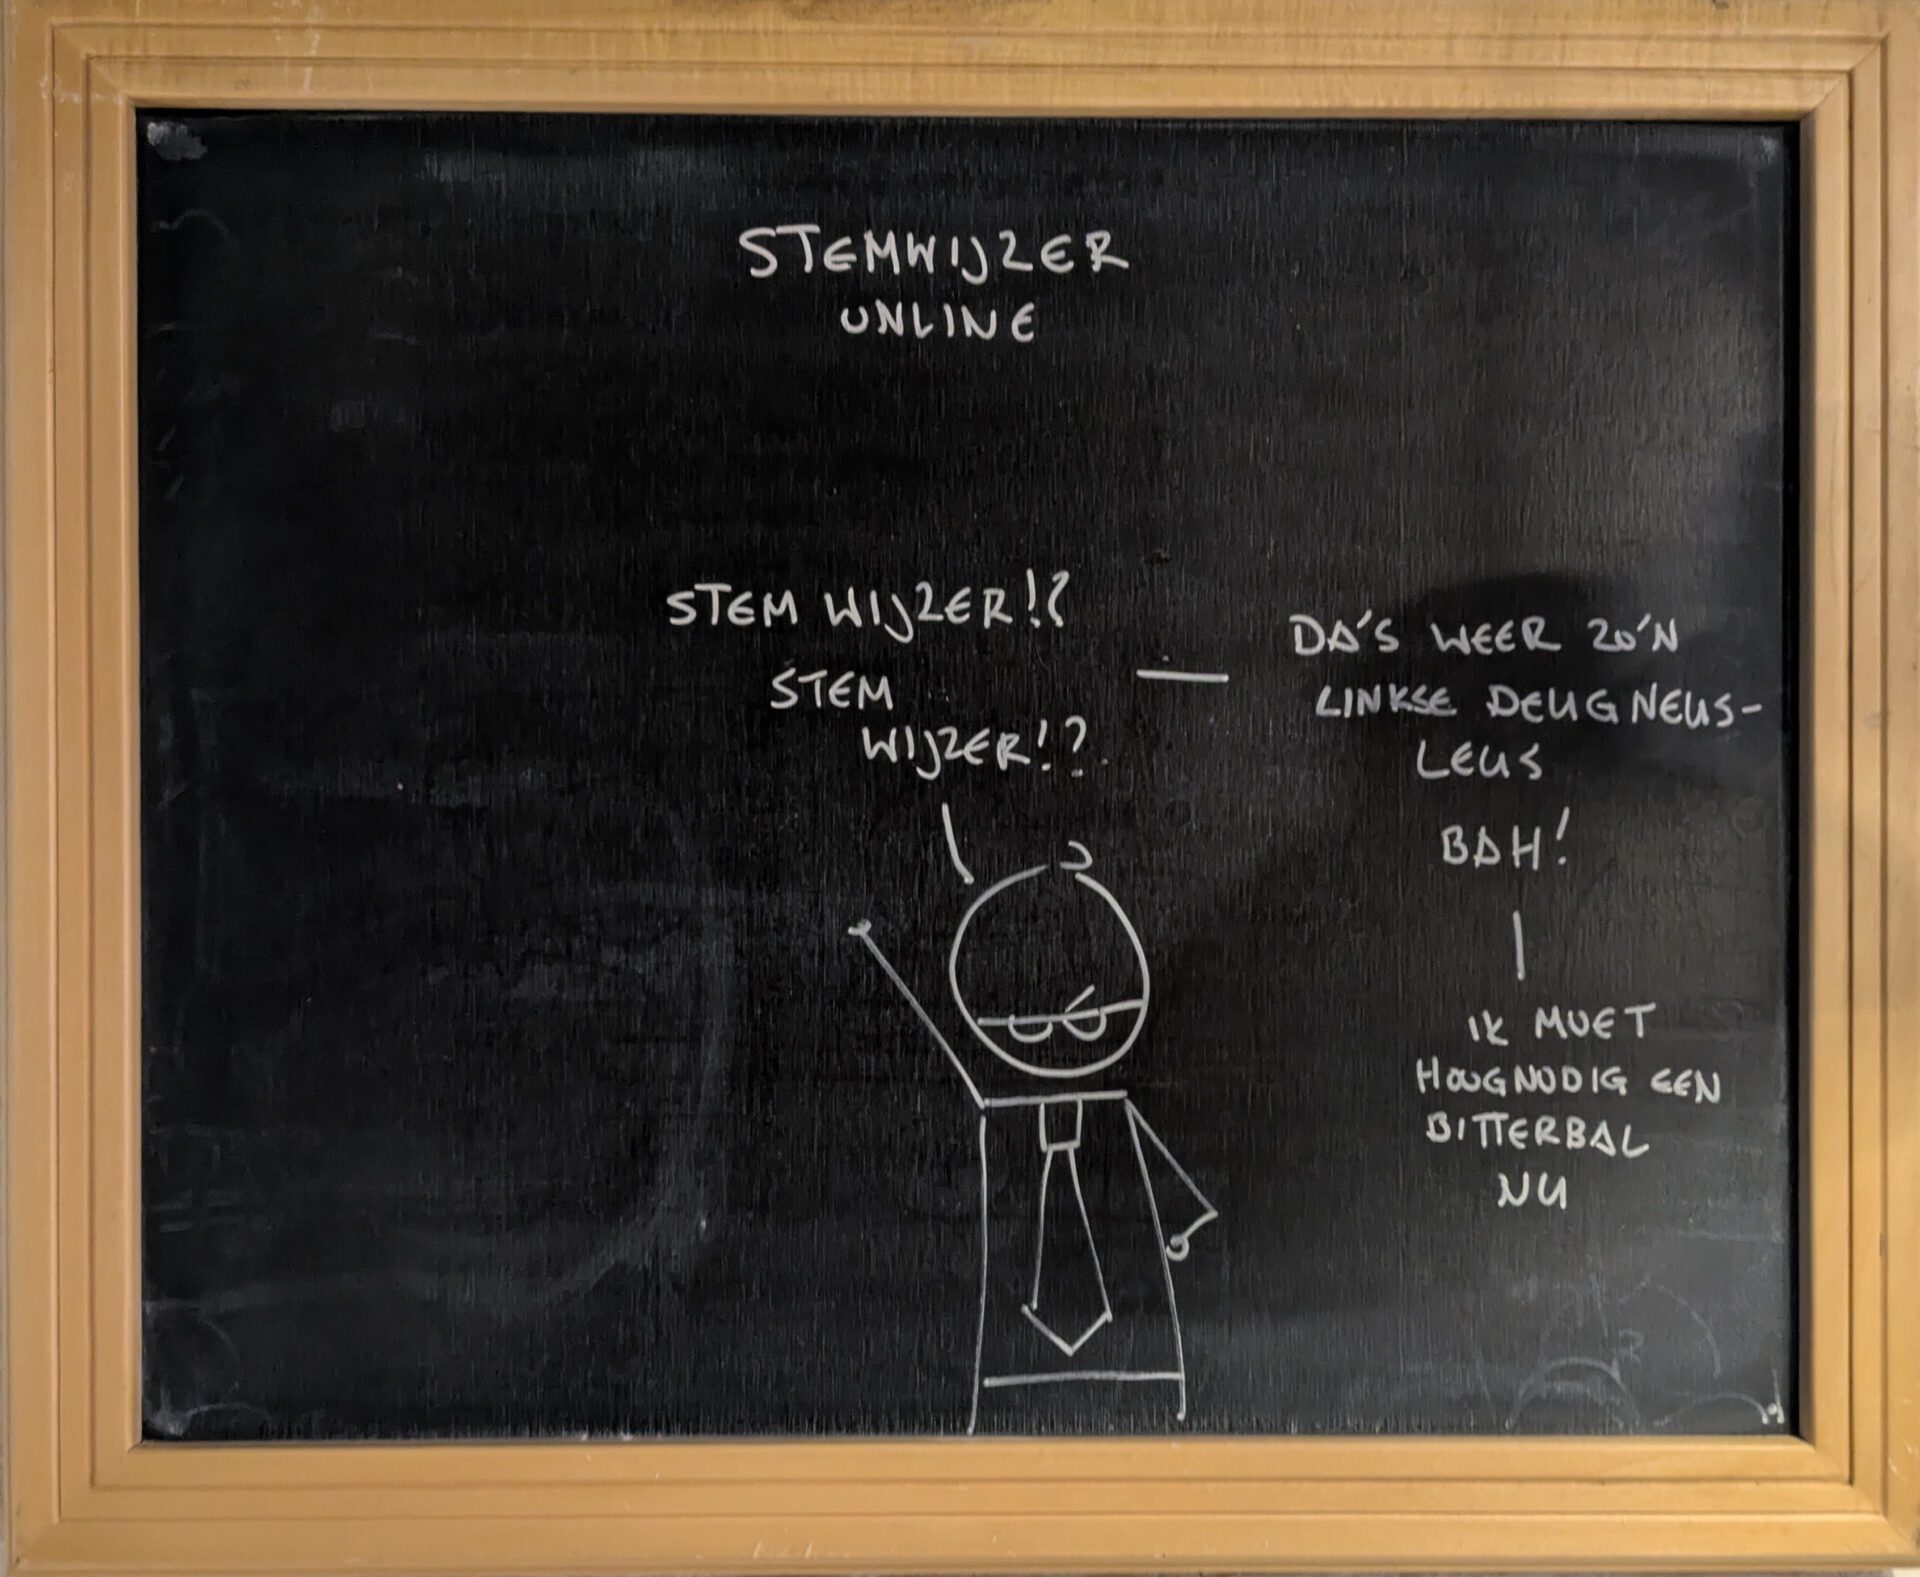 STEMWIJZER
ONLINE
STEM WIJZER!?
STEM
WIJZER!?
DA'S WEER ZO'N
LINKSE DEUGNEUS-
LEUS
BAH!
IK MOET
HOOGNODIG EEN
BITTERBAL
NU